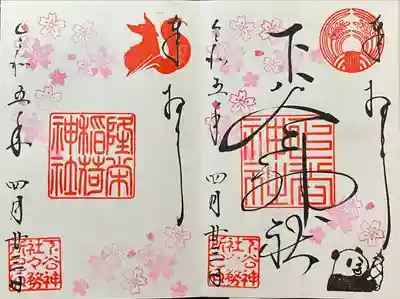 奉拝
下谷神社
下谷神社
令和五年 四月廿二日
下谷神
社々務所
奉拝
隆栄
稲荷
神社
令和五年 四月廿二日
下谷神
社々務所